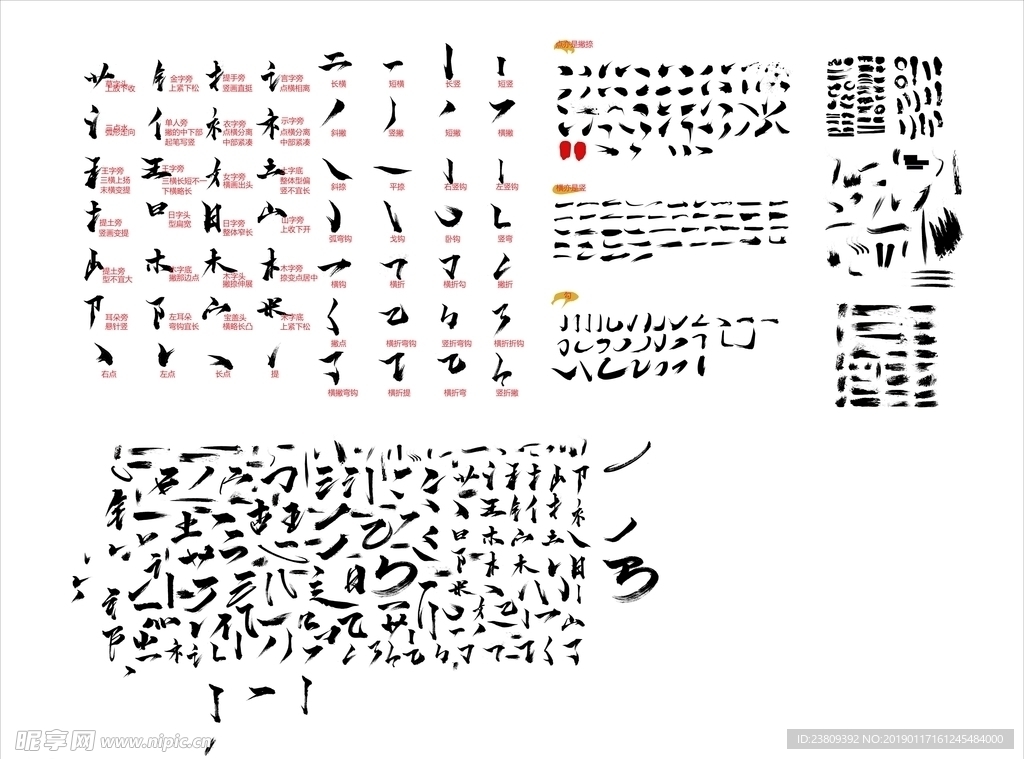 点亦是撇捺
草字头
上放下收
金字旁
上紧下松
提手旁
竖画直挺
言字旁
点横相离
长横
短横
长竖
短竖
三点水
弧形走向
单人旁
撇的中下部
起笔写竖
衣字旁
点横分离
中部紧凑
示字旁
点横分离
中部紧凑
斜撇
竖撇
短撇
横撇
王字旁
三横上扬
末横变提
王字旁
三横长短不一
下横略长
女字旁
横画出头
土字底
整体型偏
竖不宜长
斜捺
平捺
右竖钩
左竖钩
横亦是竖
提土旁
竖画变提
日字头
型扁宽
日字旁
整体窄长
山字旁
上收下开
弧弯钩
戈钩
卧钩
竖弯
提土旁
型不宜大
木字底
撇那边点
木字头
撇捺伸展
木字旁
捺变点居中
横钩
横折
横折勾
撇折
勾
耳朵旁
悬针竖
左耳朵
弯钩宜长
宝盖头
横略长凸
米字底
上紧下松
撇点
横折弯钩
竖折弯钩
横折折钩
右点
左点
长点
提
横撇弯钩
横折提
横折弯
竖折撇
昵享网 www.nipic.cn
ID:23809392 NO:20190117161245484000